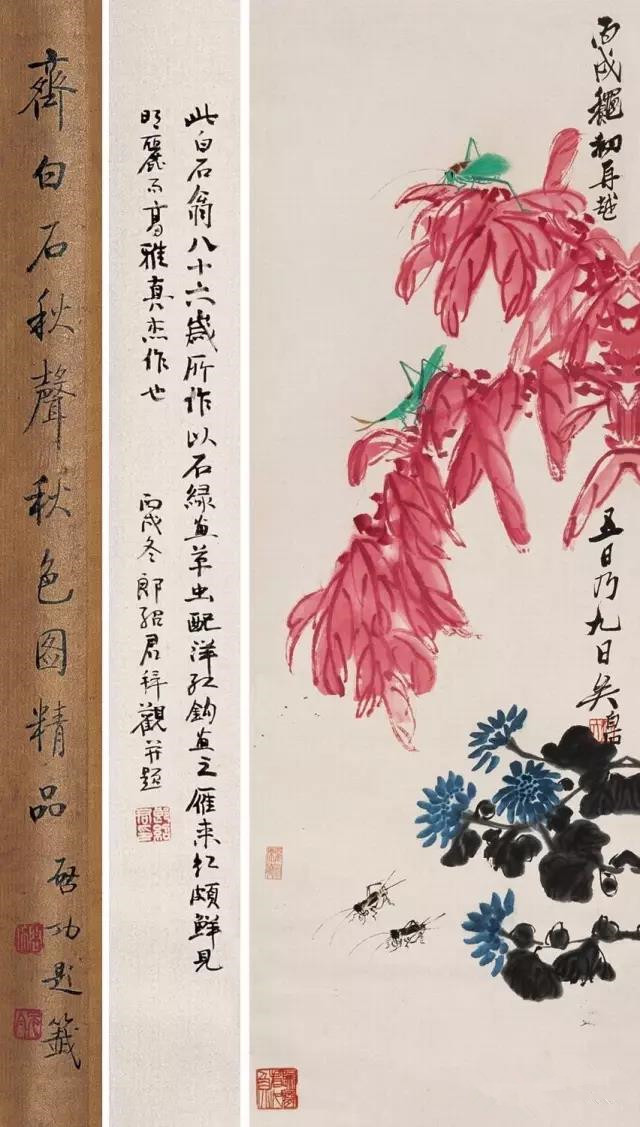 齊白石秋聲秋色圖精品
启功題籤
此白石翁八十六歲所作以石綠画草虫配洋紅鈎画之雁来红頗鮮見
明麗而高雅真杰作也
丙戌冬郎紹君拜觀并題
丙戌龝初再越
五日乃九日矣